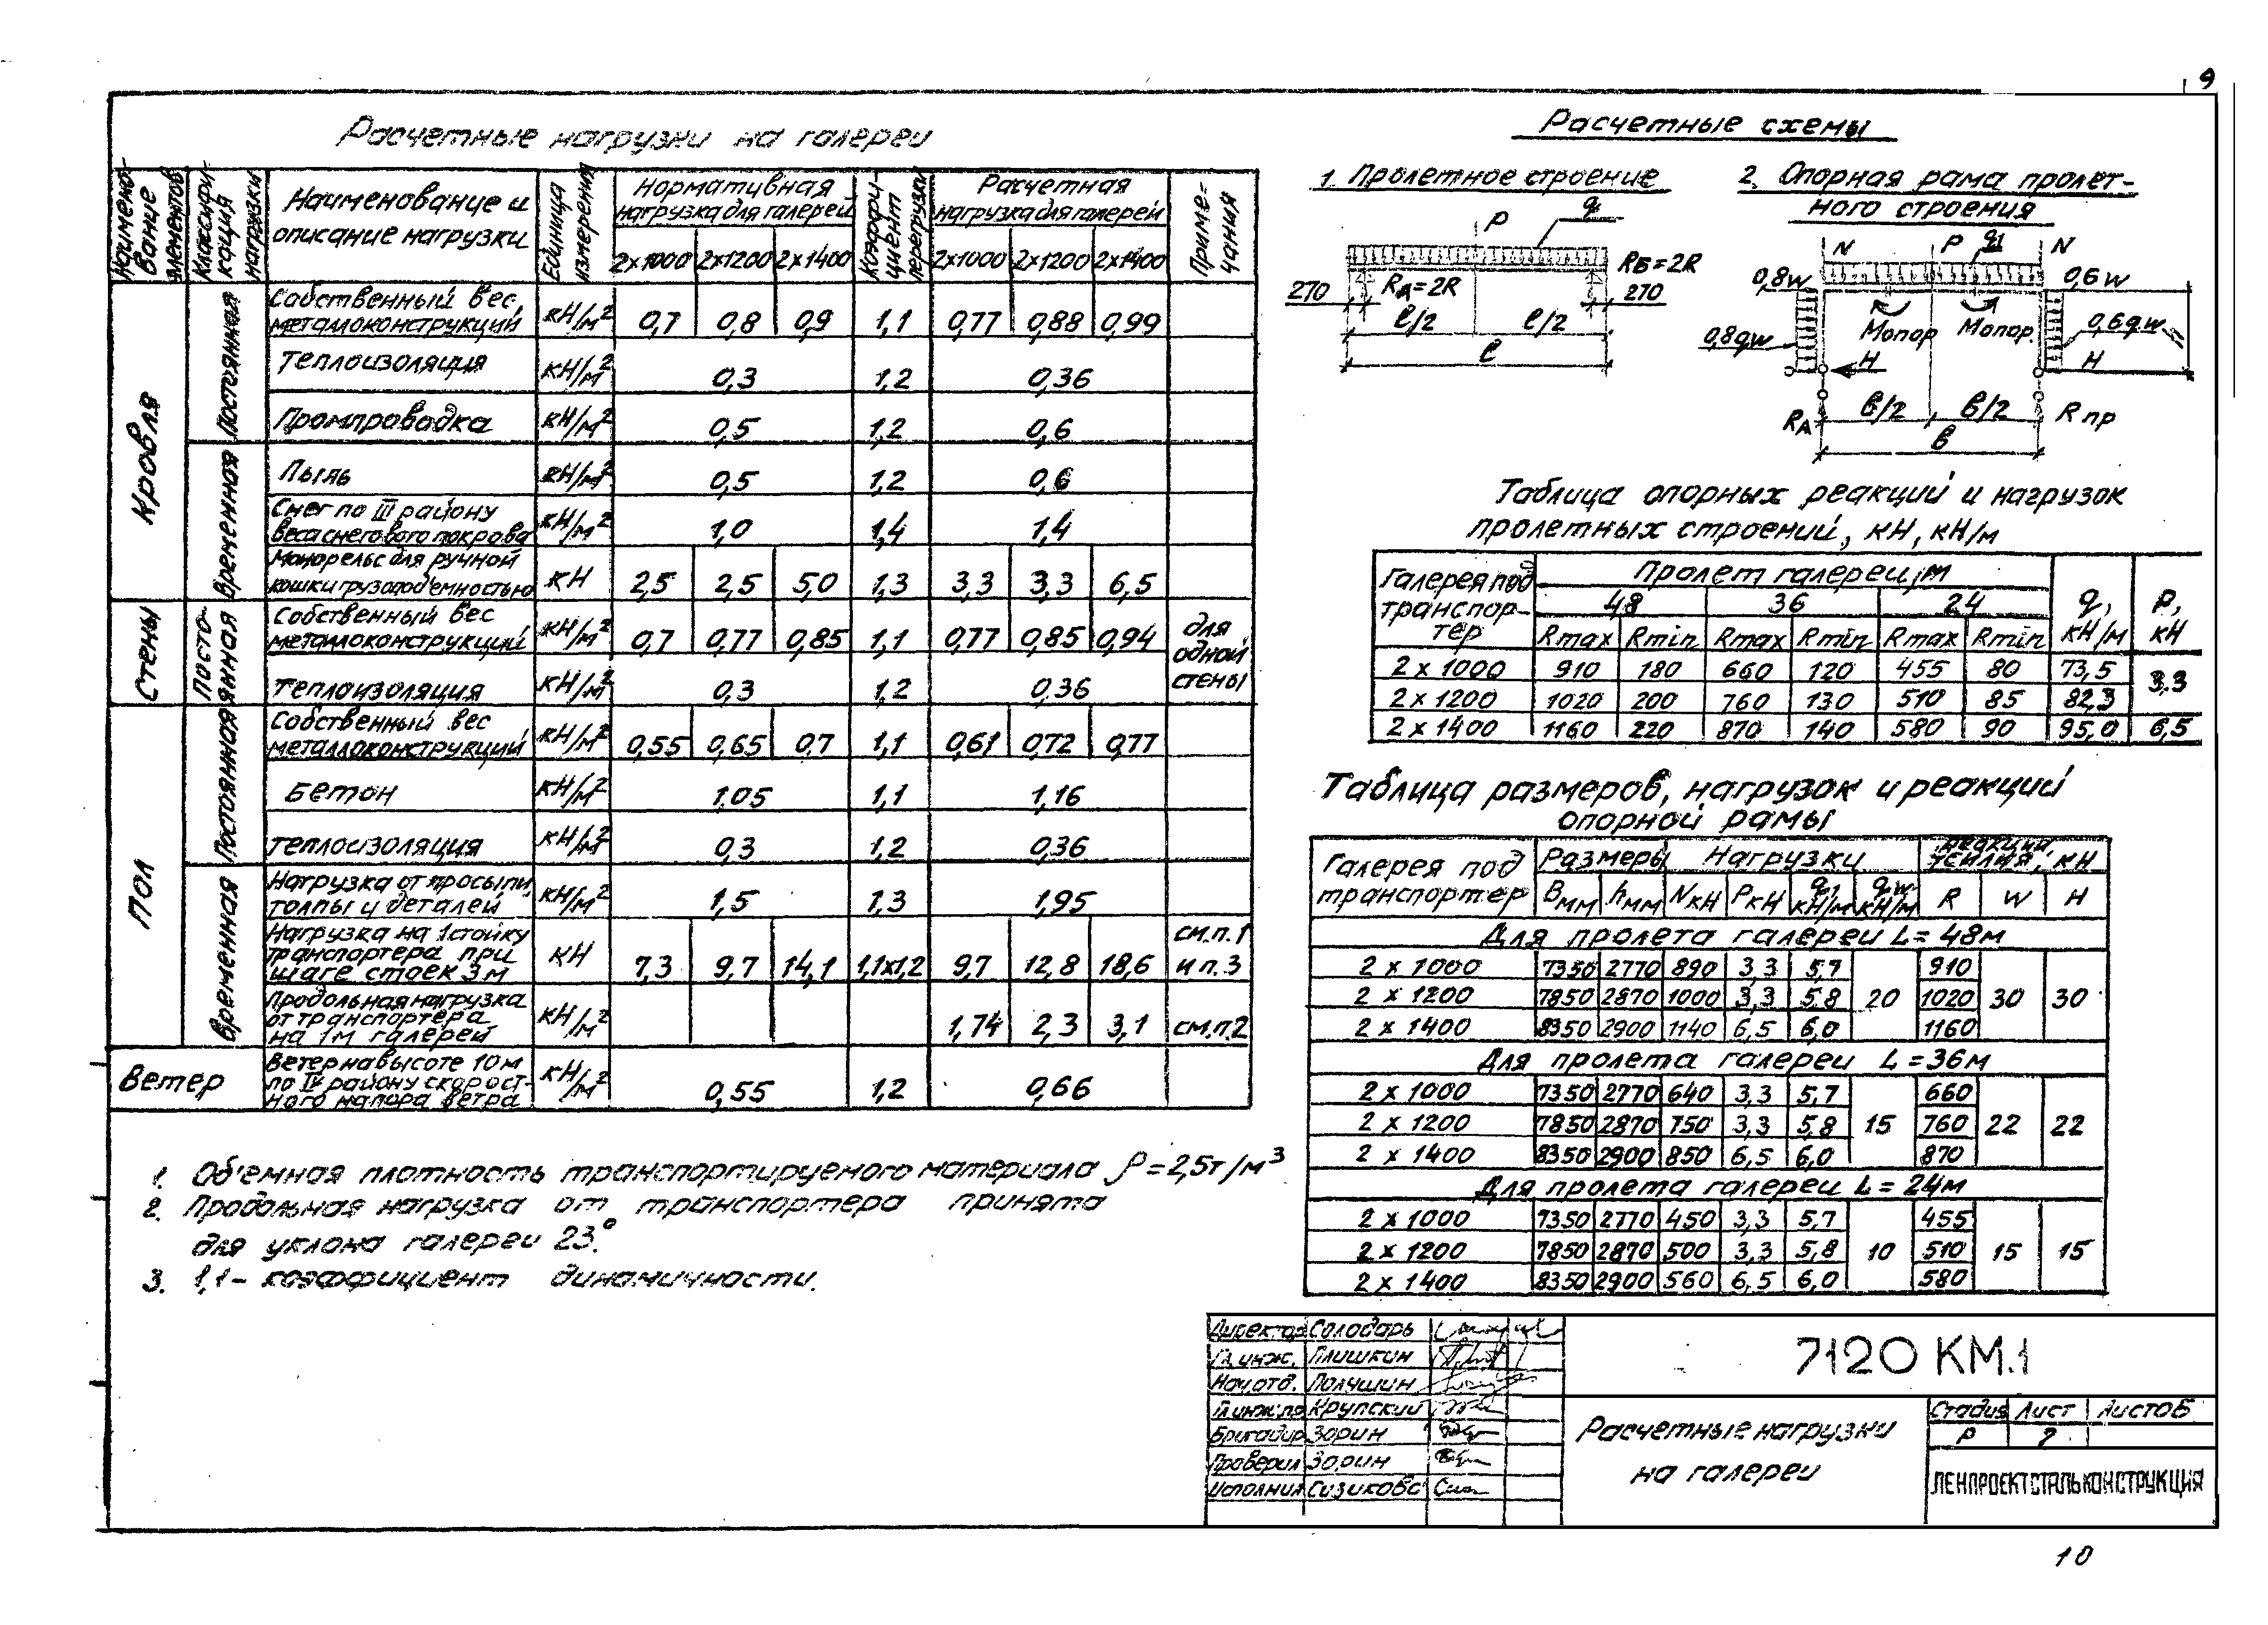 9
Расчетные нагрузки на галереи
Наименование элементов
Классификация нагрузки
Наименование и описание нагрузки
Единица измерения
Нормативная нагрузка для галерей
Коэффициент перегрузки
Расчетная нагрузка для галерей
Примечания
2х1000 2х1200 2х1400 2х1000 2х1200 2х1400
Кровля
Постоянная
Собственный вес, металлоконструкций кН/м² 0,7 0,8 0,9 1,1 0,77 0,88 0,99
теплоизоляция кН/м² 0,3 1,2 0,36
Промпроводка кН/м² 0,5 1,2 0,6
Временная
Пыль кН/м² 0,5 1,2 0,6
Снег по III району веса снегового покрова кН/м² 1,0 1,4 1,4
Монорельс для ручной кошки грузоподъемностью кН 2,5 2,5 5,0 1,3 3,3 3,3 6,5
Стены
Постоянная
Собственный вес металлоконструкций кН/м² 0,7 0,77 0,85 1,1 0,77 0,85 0,94 для одной стены
теплоизоляция кН/м² 0,3 1,2 0,36
Пол
Постоянная
Собственный вес металлоконструкций кН/м² 0,55 0,65 0,7 1,1 0,61 0,72 0,77
бетон кН/м² 1,05 1,1 1,16
теплоизоляция кН/м² 0,3 1,2 0,36
Временная
Нагрузка от просыпи, толпы и деталей кН/м² 1,5 1,3 1,95
Нагрузка на 1 стойку транспортера при шаге стоек 3 м кН 7,3 9,7 14,1 1,1х1,2 9,7 12,8 18,6 см.п.1 и п.3
Продольная нагрузка от транспортера на 1м галерей кН/м² 1,74 2,3 3,1 см.п.2
Ветер
Ветер на высоте 10м по IV району скоростного напора ветра кН/м² 0,55 1,2 0,66
1. Об'емная плотность транспортируемого материала ρ=2,5т/м³
2. Продольная нагрузка от транспортера принята
для уклона галереи 23°.
3. 1,1- коэффициент динамичности.
Расчетные схемы
1. Пролетное строение
P q
RБ=2R
RА=2R
270 270
ℓ/2 ℓ/2
ℓ
2. Опорная рама пролет-
ного строения
N P q1 N
0,8w 0,6w
0,8qw Мопор Мопор. 0,6qw
Н Н
RА в/2 в/2 Rпр
в
Таблица опорных реакций и нагрузок
пролетных строений, кН, кН/м
Галерея под транспортер
Пролет галереи, м
q, кН/м
P, кН
48 36 24
Rmax Rmin Rmax Rmin Rmax Rmin
2 х 1000 910 180 660 120 455 80 73,5 3,3
2 х 1200 1020 200 760 130 510 85 82,3
2 х 1400 1160 220 870 140 580 90 95,0 6,5
Таблица размеров, нагрузок и реакций
опорной рамы
Галерея под транспортер
Размеры Нагрузки реакции усилия, кН
Вмм hмм Nкн Ркн q1 кН/м qw кН/м R W Н
Для пролета галереи L= 48м
2 х 1000 7350 2770 890 3,3 5,7 910
2 х 1200 7850 2870 1000 3,3 5,8 20 1020 30 30
2 х 1400 8350 2900 1140 6,5 6,0 1160
Для пролета галереи L = 36м
2 х 1000 7350 2770 640 3,3 5,7 660
2 х 1200 7850 2870 750 3,3 5,8 15 760 22 22
2 х 1400 8350 2900 850 6,5 6,0 870
Для пролета галереи L= 24м
2 х 1000 7350 2770 450 3,3 5,7 455
2 х 1200 7850 2870 500 3,3 5,8 10 510 15 15
2 х 1400 8350 2900 560 6,5 6,0 580
Директор Солодарь
Гл.инж. Плишкин
Нач.отд. Полушин
Гл.инж.пр Крупский
Бригадир Зорин
Проверил Зорин
Исполнил Сизикова
7120 КМ.1
Расчетные нагрузки
на галереи
Стадия Лист Листов
Р 2
ЛЕНПРОЕКТСТАЛЬКОНСТРУКЦИЯ
10